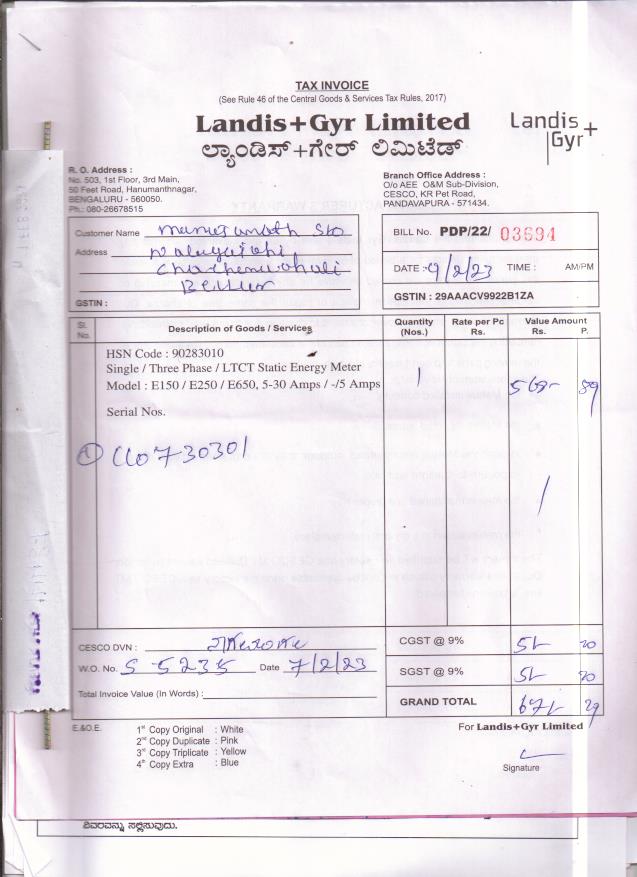 TAX INVOICE
(See Rule 46 of the Central Goods & Services Tax Rules, 2017)
Landis+Gyr Limited
ಲ್ಯಾಂಡಿಸ್+ಗೇರ್ ಲಿಮಿಟೆಡ್
Landis+
Gyr
R. O. Address :
No. 503, 1st Floor, 3rd Main,
50 Feet Road, Hanumanthnagar,
BENGALURU - 560050.
Ph.: 080-26678515
Branch Office Address :
O/o AEE O&M Sub-Division,
CESCO, KR Pet Road,
PANDAVAPURA - 571434.
Customer Name
Address
Bellur
GSTIN :
BILL No. PDP/22/ 03694
DATE : 9/2/23 TIME : AM/PM
GSTIN : 29AAACV9922B1ZA
Sl. No. Description of Goods / Services Quantity (Nos.) Rate per Pc Rs. Value Amount Rs. P.
HSN Code : 90283010
Single / Three Phase / LTCT Static Energy Meter
Model : E150 / E250 / E650, 5-30 Amps / -/5 Amps 1
Serial Nos.
① 110730301
CESCO DVN :
W.O. No. S 5235 Date 7/2/23
Total Invoice Value (In Words) :
CGST @ 9%
SGST @ 9%
GRAND TOTAL
E.&O.E.
1st Copy Original : White
2nd Copy Duplicate : Pink
3rd Copy Triplicate : Yellow
4th Copy Extra : Blue
For Landis+Gyr Limited
Signature
ವಿವರವನ್ನು ಸಲ್ಲಿಸುವುದು.